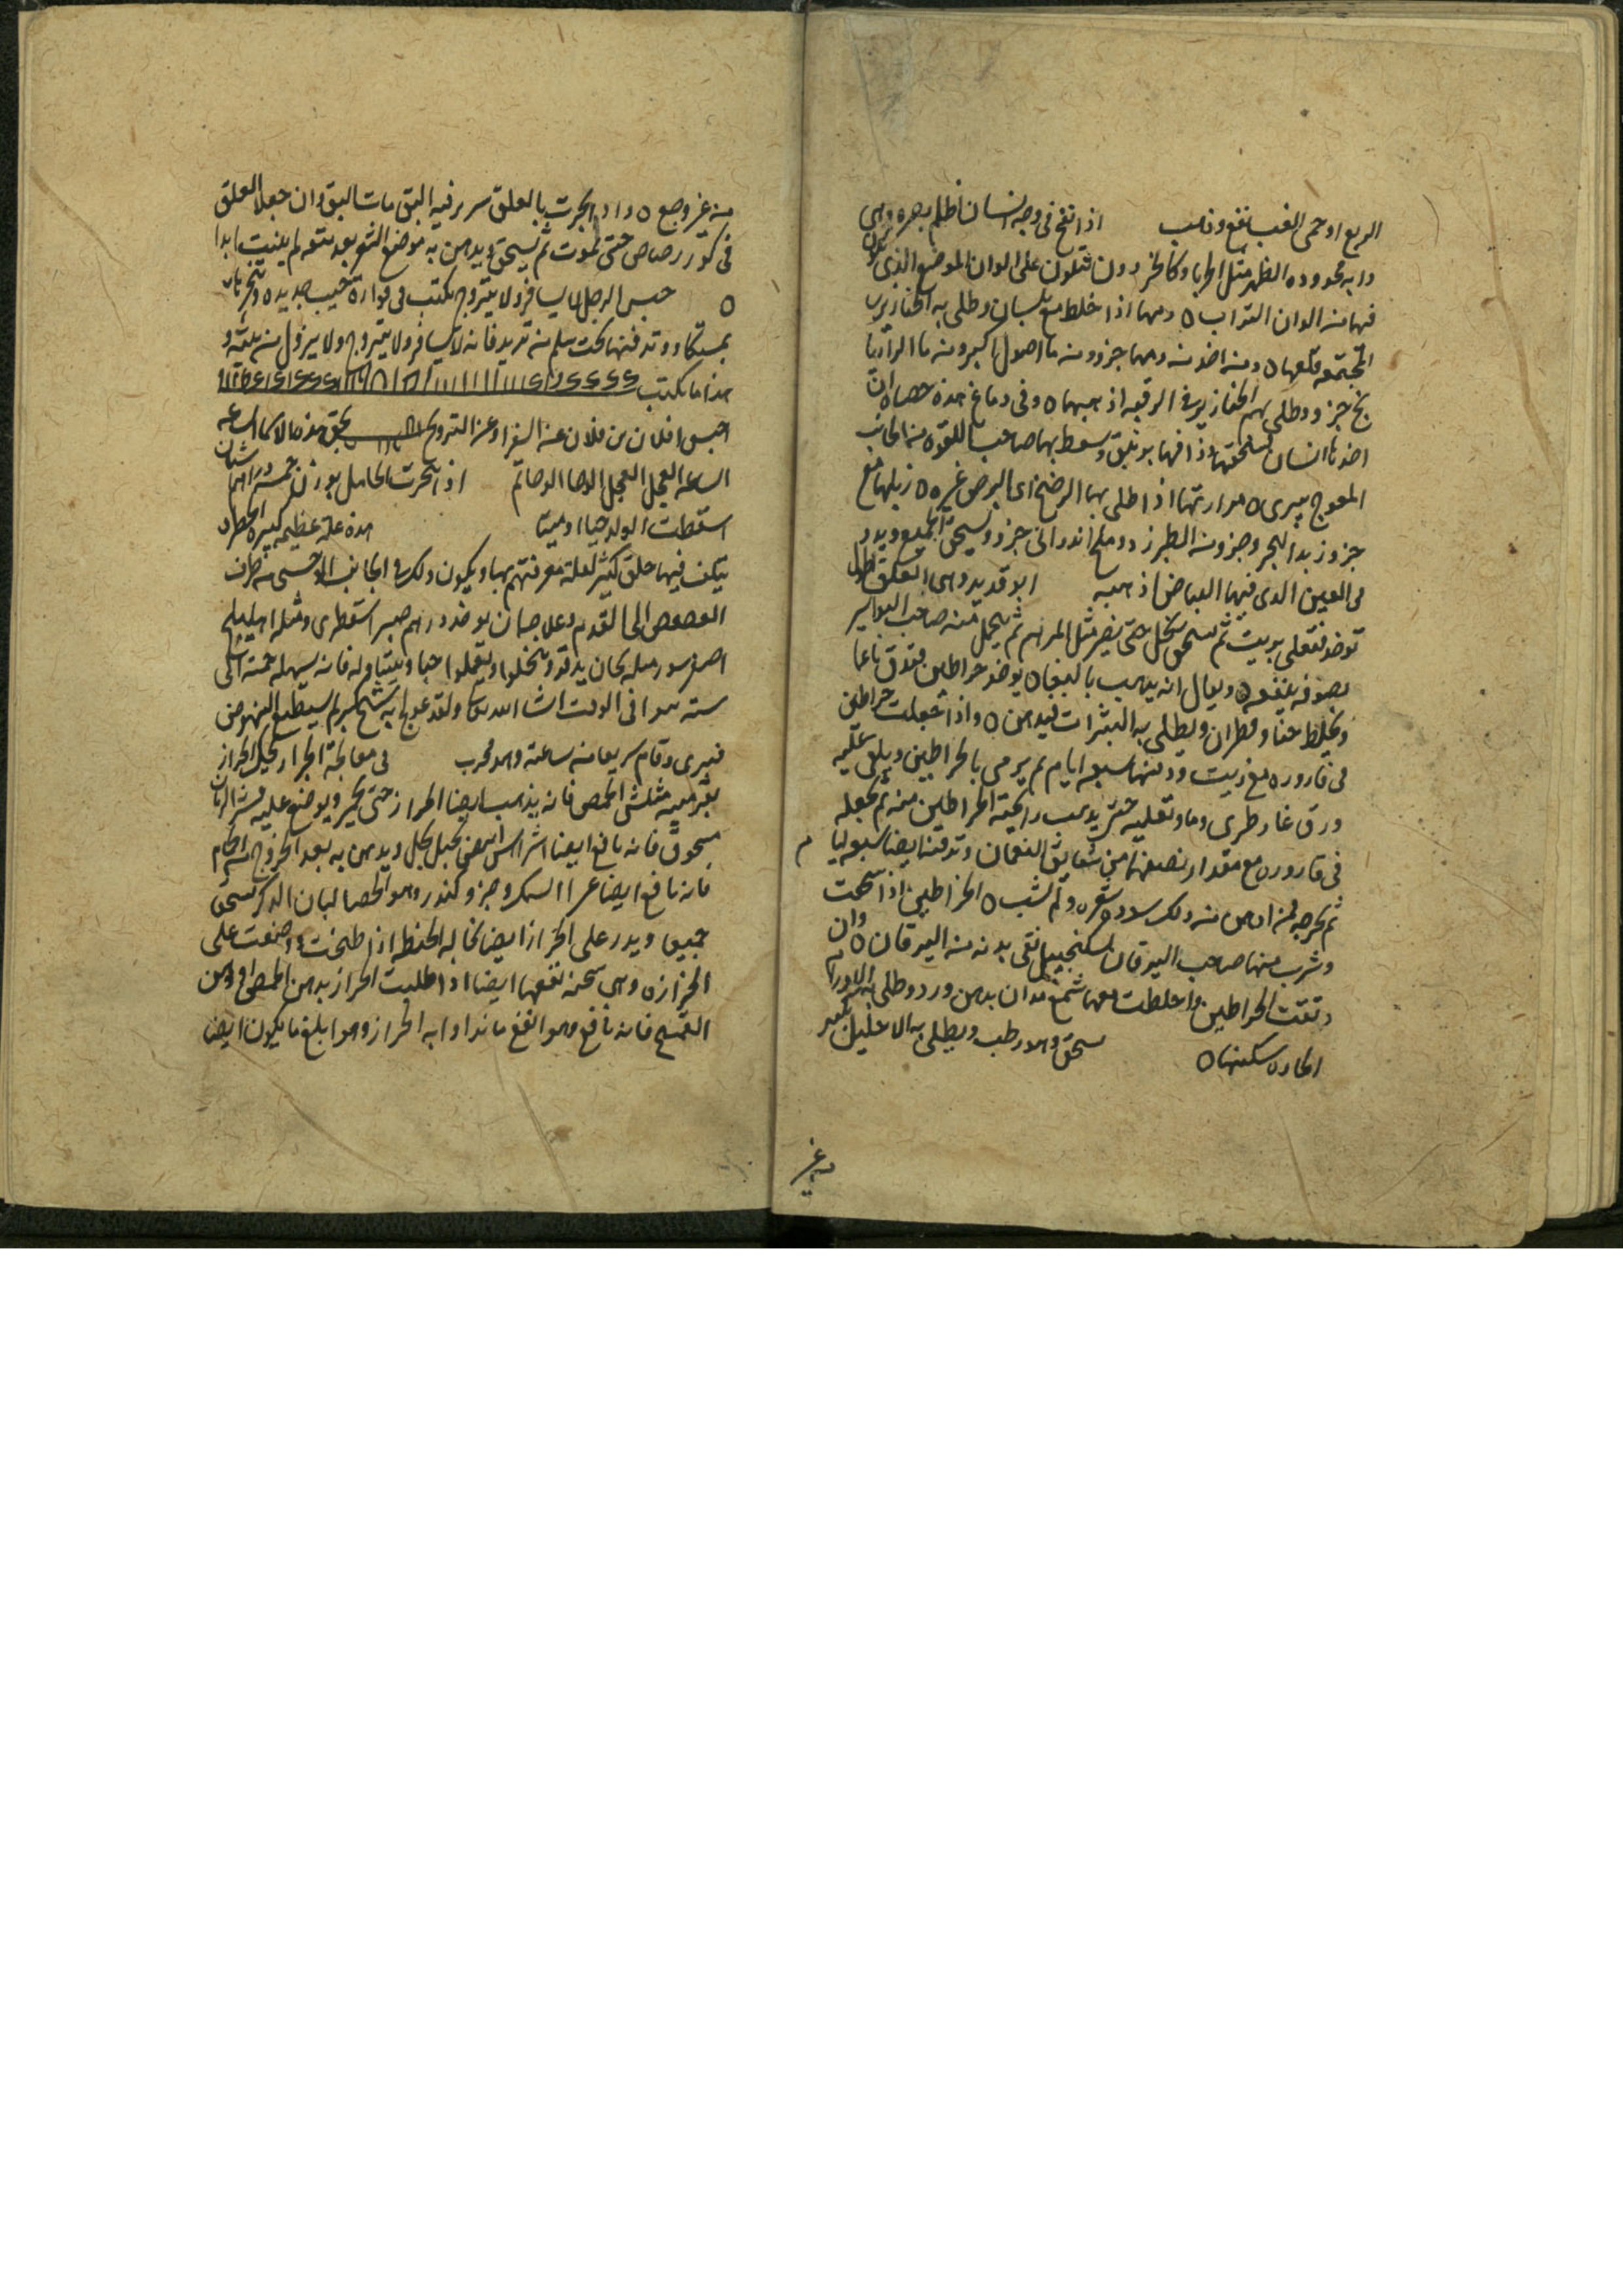 الربع او حمى الغب نفع وذهب اذا نفخ في وجه انسان اظلم بصره وهي
دابه محدوده الظهر مثل الحربا وكالحردون تتلون على الوان الموضع الذي تكون
فيها من الوان التراب ٥ دمها اذا خلط مع بلسان وطلي به الخنازير
المجتمعه قلعها ٥ ومن اخذ من دمها جزو ومن ما اصول الكبر ومن ما الرازيا
نج جزو وطلي بهم الخنازير في الرقبه اذهبها ٥ وفي دماغ هذه حصاه ان
اخذها انسان فسحقها وذافها بزنبق وسعط بها صاحب اللقوه من الجانب
المعوج يبرى ٥ مرارتها اذا طلي بها الوضح اي البرص غيره ٥ زبلها مع
جزو زبد البحر وجزو من الطبرزد وملح اندراني جزو ويسحق الجميع ويدر
في العين الذي فيها البياض اذهبه ابو قديد وهي العلق الطوال
توخذ فتغلى بزيت ثم تسحق بخل حتى تصير مثل المرهم ثم يتحمل منه صاحب البواسير
بصوفه ينفعه ٥ ويقال انه يذهب بالبقا ٥ يوخذ خراطين فتدق ناعما
وتخلط حنا وقطران ويطلى به البثرات ليدهن ٥ واذا جعلت خراطين
في قاروره مع زيت ودفنها سبعه ايام ثم يرمى بالخراطين ويلقى عليه
ورق غار طري وما وتغليه حتى يذهب رايحة الخراطين منه ثم تجعله
في قاروره مع مقدار نصفها من شقايق النعمان وتدفنه ايضا سبعه ايام
ثم تخرجه فمن ادهن منه ذلك سود شعره ولم يشب ٥ الخراطين اذا سحقت
وشرب منها صاحب اليرقان بسكنجبيل نقى بدنه من اليرقان ٥ وان
دققت الخراطين واخلطت معها شمع مداف بدهن ورد وطلي به الاورام
الحاره سكنها ٥ سحق والا رطب ويطلى به الاحليل يكبر
من غير
من غير وجع ٥ واذا بخرت بالعلق سرير فيه البق مات البق وان جعل العلق
في كوز رصاص حتى تموت ثم يسحق ويدهن به موضع الشعر بعد نتفه لم ينبت ابدا
٥ حبس الرجل لا يسافر ولا يتزوج تكتب في قواره جيب جديده وتبخرها
بمستكا وتدفنها تحت سلم من تريد فانه لا يسافر ولا يتزوج ولا يزول من بيته و
هذا ما تكتب
احبس فلان بن فلان عن السفر او عن التزويج بحق هذه الاسما الساعه
الساعه العجل العجل الوحا الوحا تم اذا تبخرت الحامل بوزن خمسه دراهم شنان
اسقطت الولد حيا او ميتا هذه علة عظيمه كبيره الخطر
يتلف فيها خلق كثير لقلة معرفتهم بها ويكون ذلك في الجانب الوحشي من طرف
العصعص الى القدم وعلاجه ان يوخذ درهم صبر اسقطري ومثله اهليلج
اصفر سورمله يحان يدقوا وينخلوا ويعملوا حبا ويتناوله فانه يسهله خمسه الى
سته يبرا في الوقت ان شا الله تعالى ولقد عولج به شيخ كبير لم يستطيع النهوض
فبرى وقام سريعا من ساعته وهو مجرب في معالجة الحزاز تحك الحزاز
بقرميه مثلثي الحمص فانه يذهب ايضا الحزاز حتى يحمر ويوضع عليه قشر الرمان
مسحوق فانه نافع ايضا اشراس ابيض يجبل بخل ويدهن به بعد الخروج من الحمام
فانه نافع ايضا غرا السمك وجزو كندر وهو الحصا لبان الذكر يسحق
جميعا ويدر على الحزاز ايضا نخالة الحنطه اذا طبخت ووضعت على
الحزازه وهي سخنه نفعها ايضا اذا طليت الحزاز بدهن الحمص او دهن
القمح فانه نافع وهو انفع ما تداوا به الحزاز وهو ابلغ ما يكون ايضا